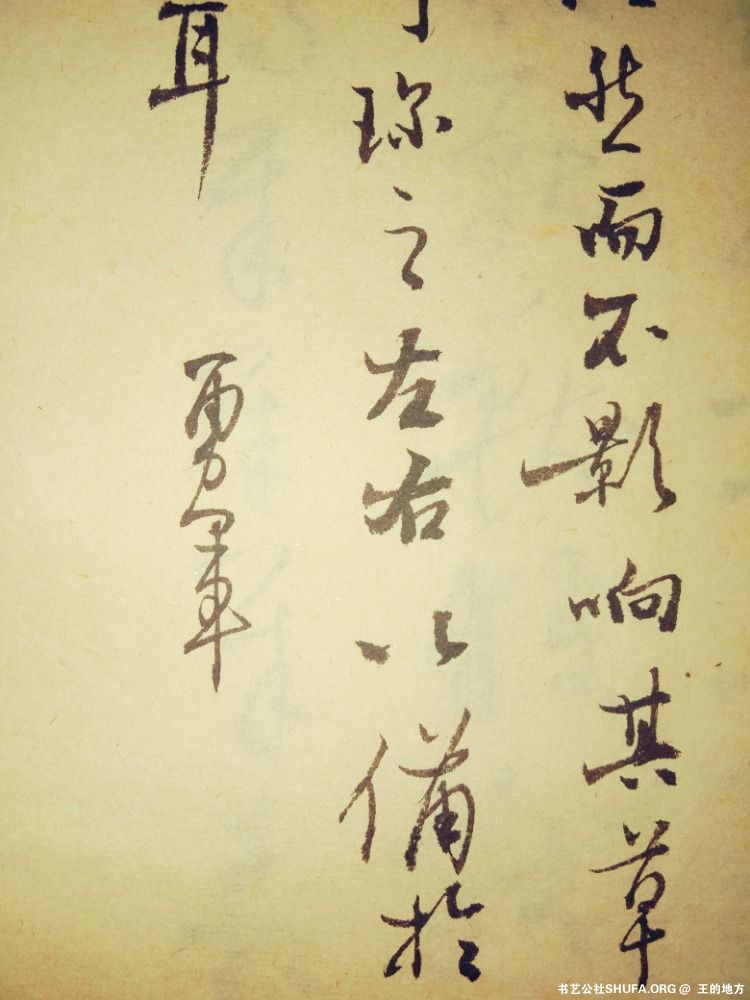 然而不影响其草
珎之左右以備於
耳
勇軍
书艺公社SHUFA.ORG @ 王的地方